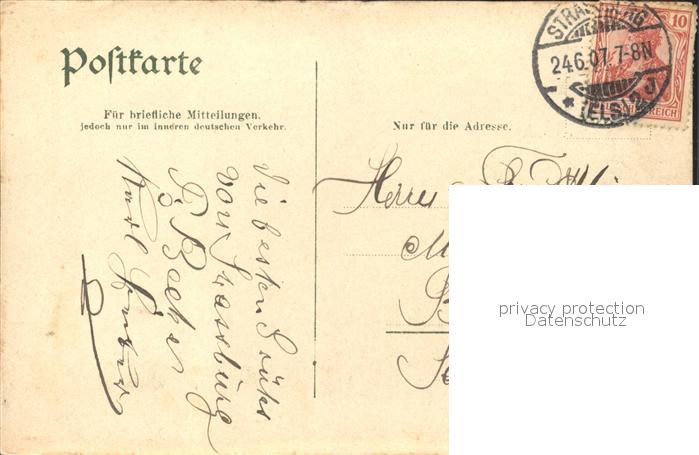 Postkarte
Für briefliche Mitteilungen.
jedoch nur im inneren deutschen Verkehr.
Nur für die Adresse.
STRASSBURG
24.6.07.7-8N
(ELS)2
10
REICH
Die besten Grüße
von Strassburg
Becker
Karl
Herrn
privacy protection
Datenschutz